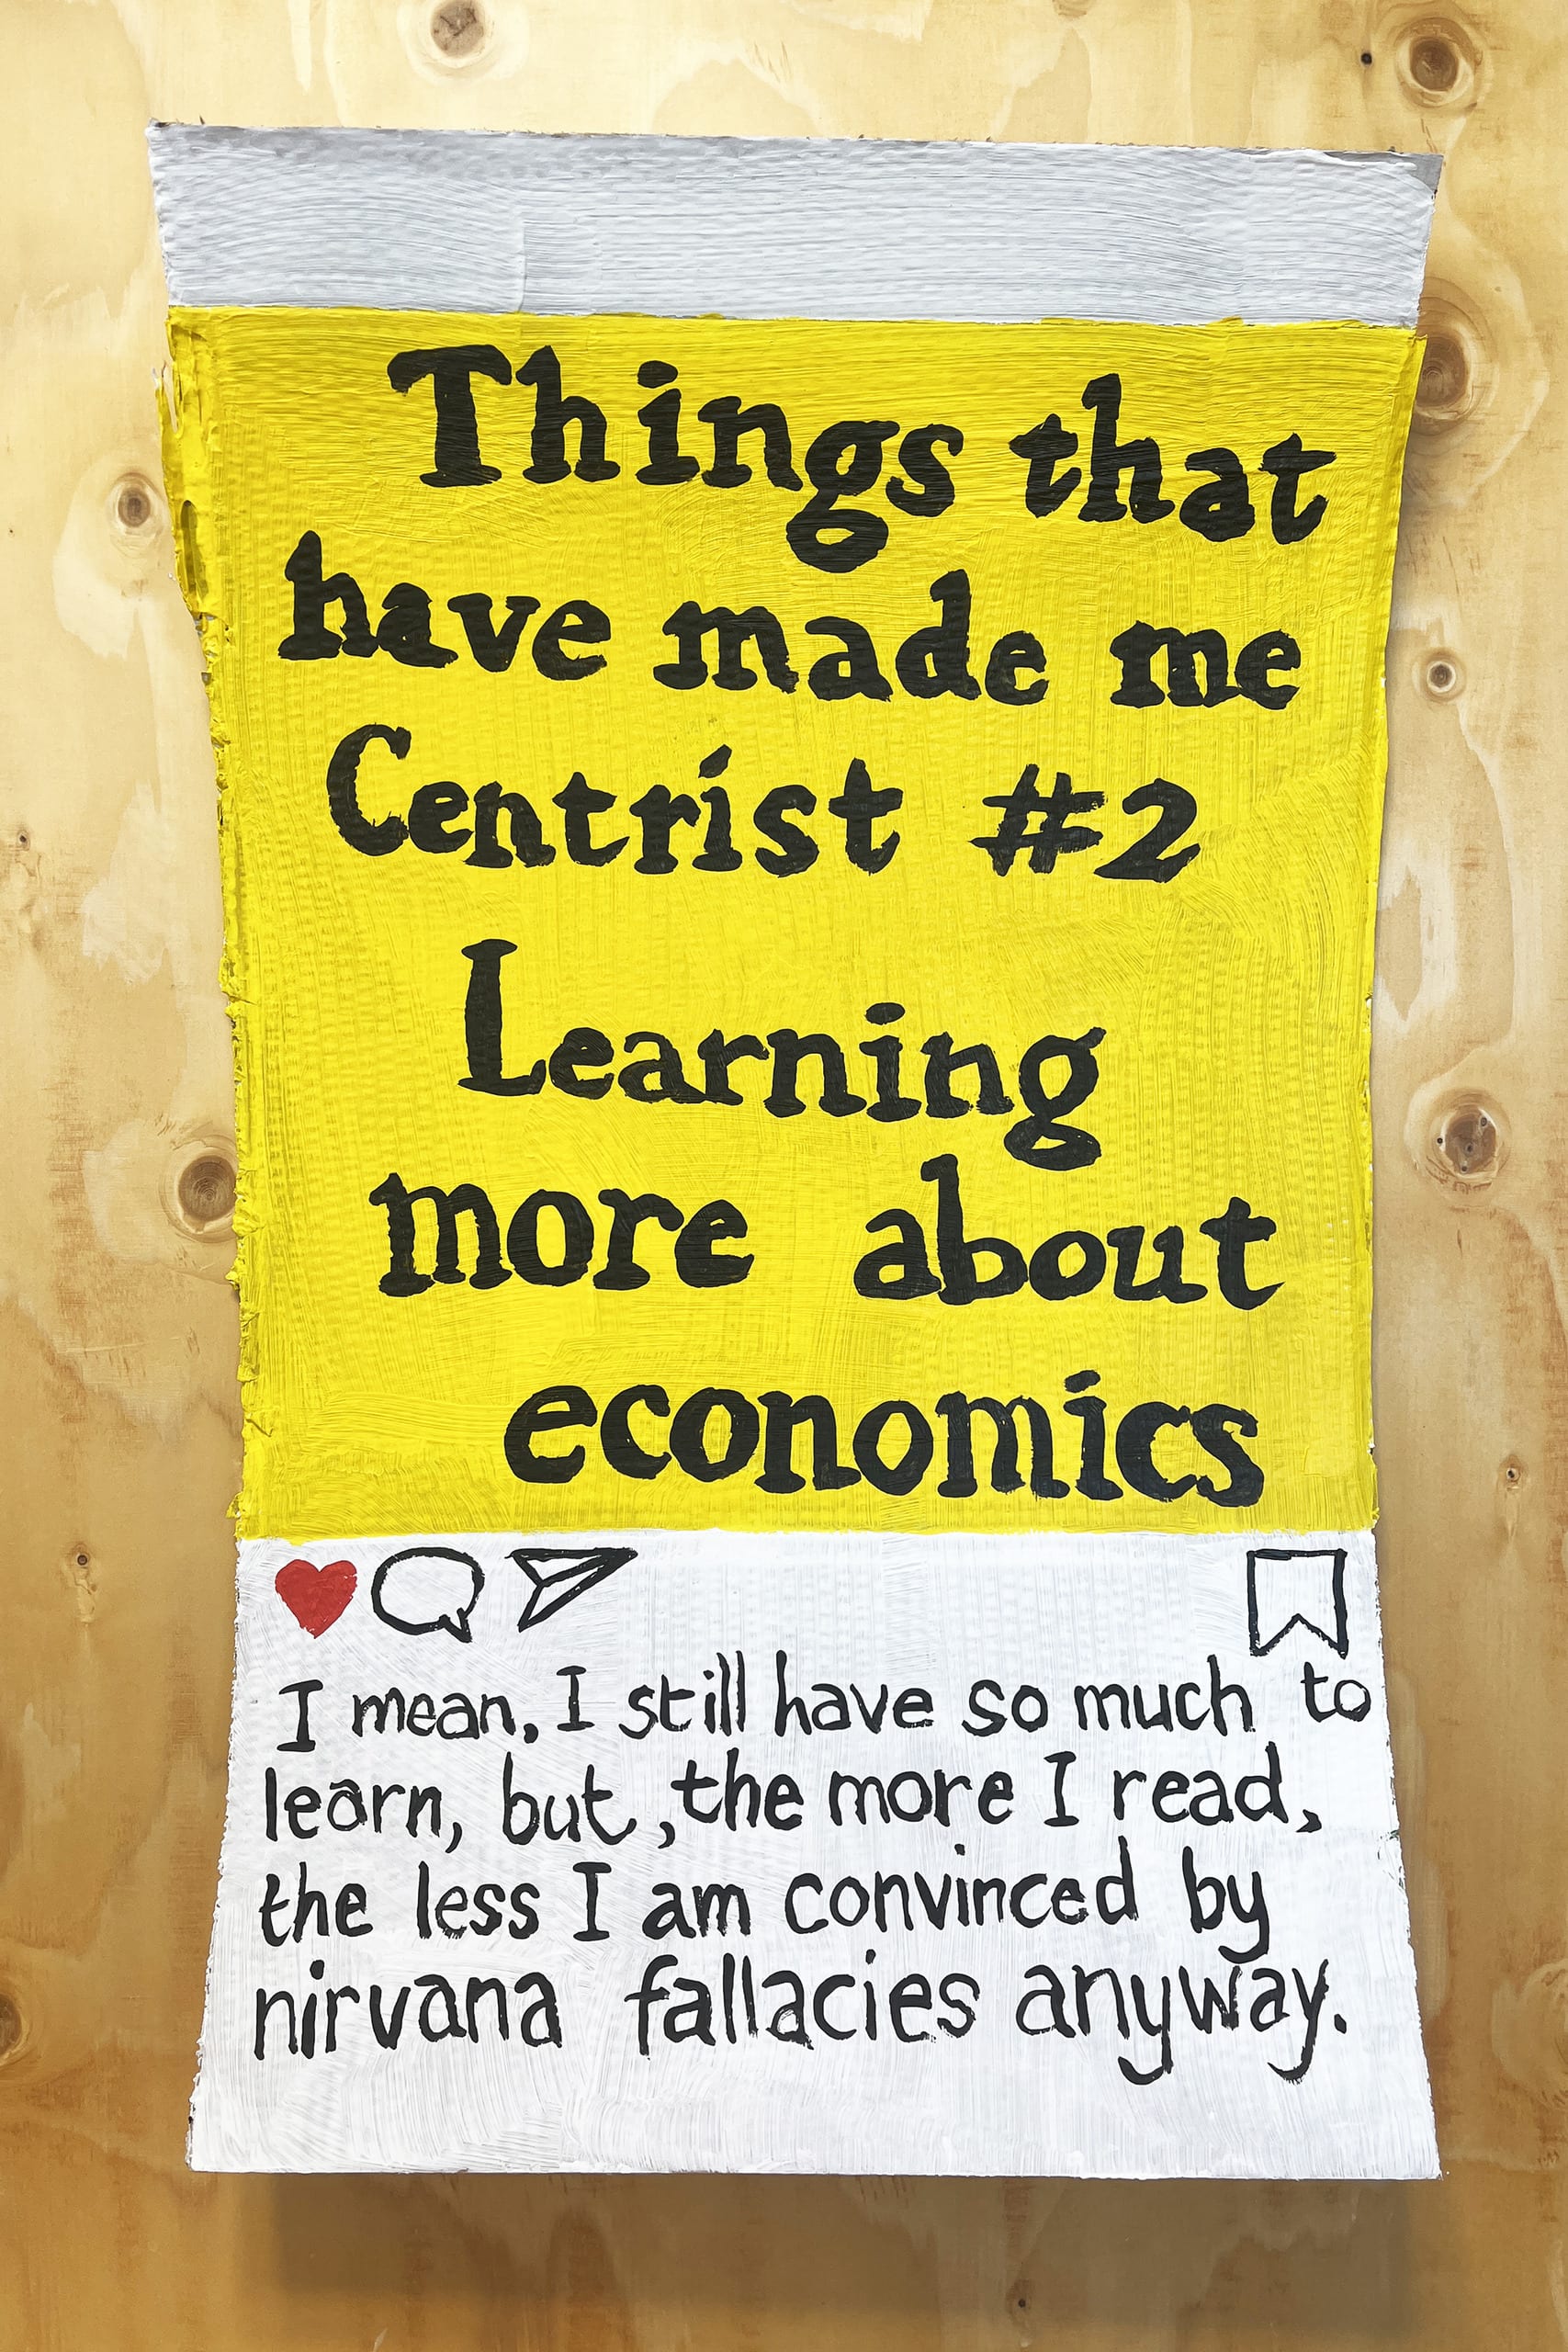 Things that
have made me
Centrist #2
Learning
more about
economics
I mean, I still have so much to
learn, but, the more I read,
the less I am convinced by
nirvana fallacies anyway.